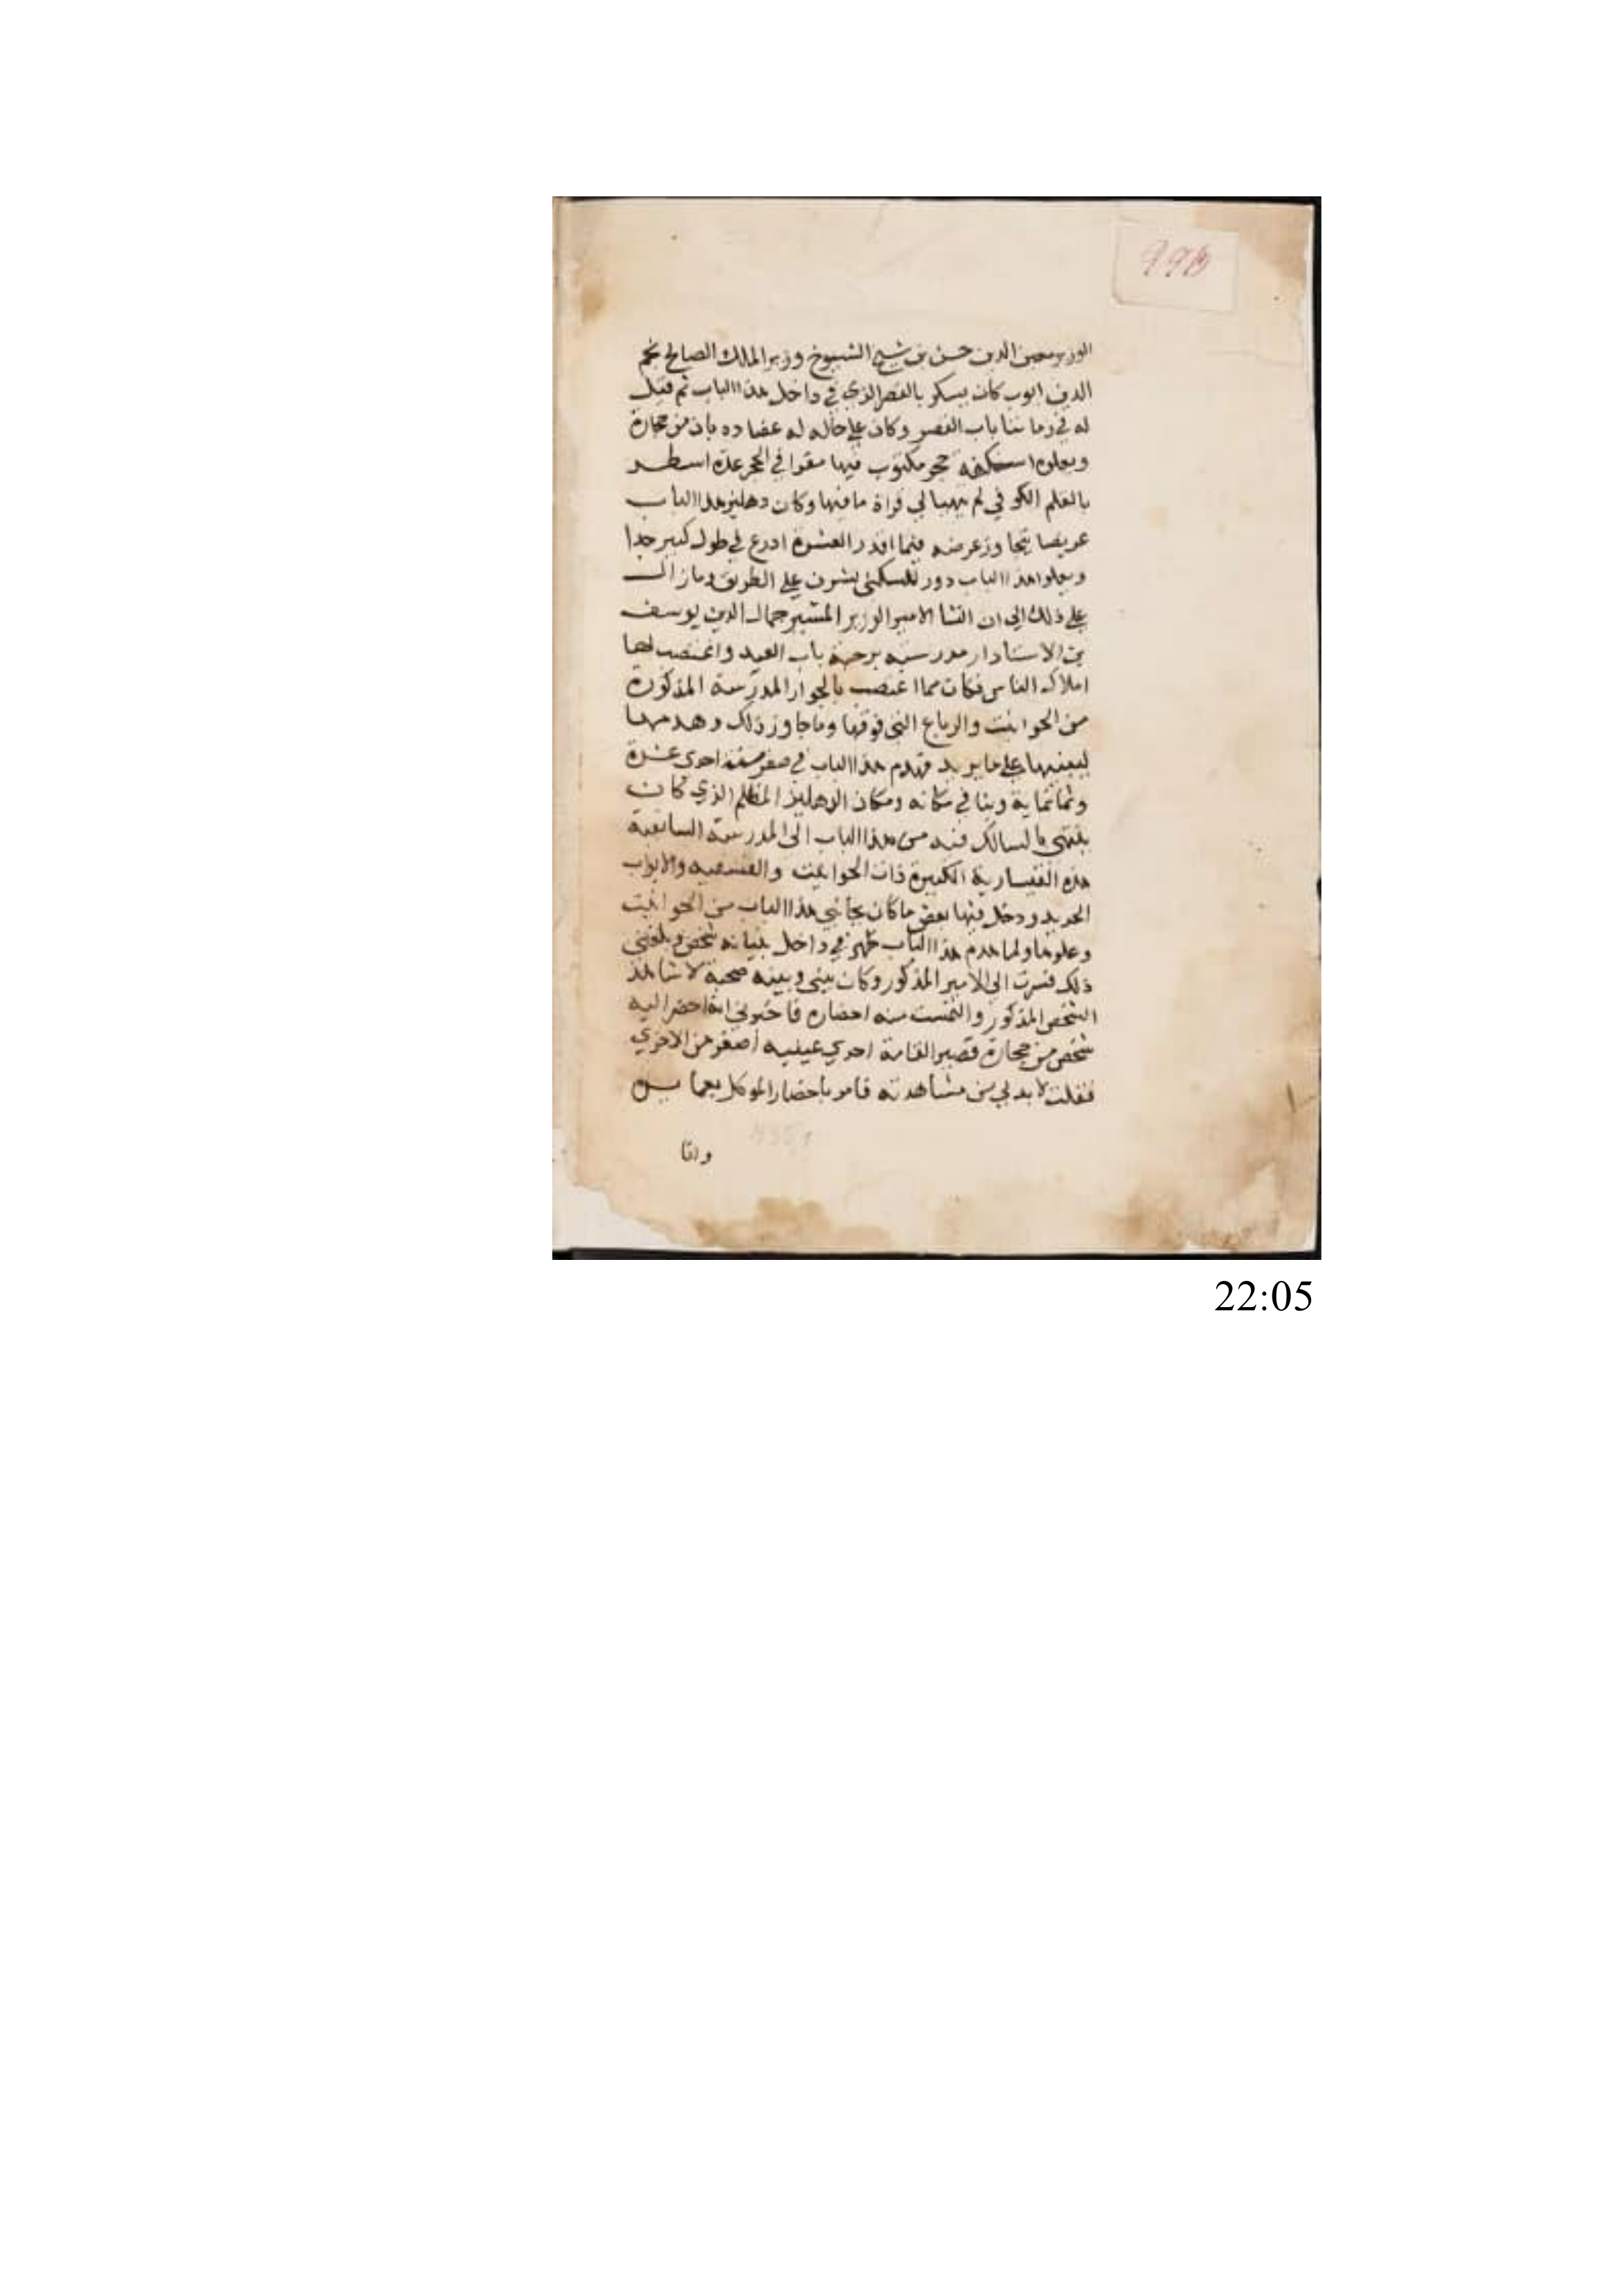 الوزير معين الدين حسن بن شيخ الشيوخ وزير الملك الصالح نجم
الدين ايوب كان يسكن بالقصر الذي في داخل هذا الباب ثم قيل
له في زماننا باب القصر وكان علي حاله له عضادتان من حجارة
ويعلوه اسكفه حجر مكتوب فيها نقرا في الحجر عدة اسطر
بالقلم الكوفي لم يتهيا لي قراة ما فيها وكان دهليز هذا الباب
عريضا يتجاوز عرضه فيما اقدر العشرة ادرع في طول كبير جدا
ويعلوا هذا الباب دور للسكني يشرف علي الطريق وما زال
علي ذلك الي ان انشا الامير الوزير المشير جمال الدين يوسف
بن الاستادار مدرسته برحبة باب العيد واغتصب لها
املاك الناس فكان مما اغتصب بالجوار المدرسة المذكورة
من الحوانيت والرباع التي فوقها وما جاوز ذلك وهدمها
ليبنيها علي ما يريد فهدم هذا الباب في صفر سنة احدي عشرة
وثمانماية وبنا في مكانه ومكان الدهليز المظلم الذي كان
ينتهي بالسالك فيه من هذا الباب الي المدرسة السابقية
هذه القيسارية الكبيرة ذات الحوانيت والسقيفه والابواب
الحديد ودخل فيها بعض ما كان بجانبي هذا الباب من الحوانيت
وعلوها ولما هدم هذا الباب ظهر في داخل بنيانه شخص وبلغني
ذلك فسرت الي الامير المذكور وكان بيني وبينه صحبة لاشاهد
الشخص المذكور والتمست منه احضاره فاخبرني انه احضر اليه
شخص من حجارة قصير القامة احدي عينيه اصغر من الاخري
فقلت لا بد لي من مشاهدته فامر باحضار الموكل بعمايس
وانا
22:05